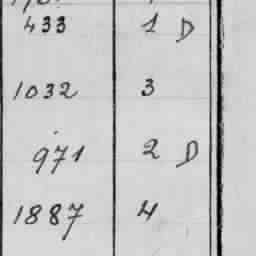 433 1 D
1032 3
971 2 D
1887 4